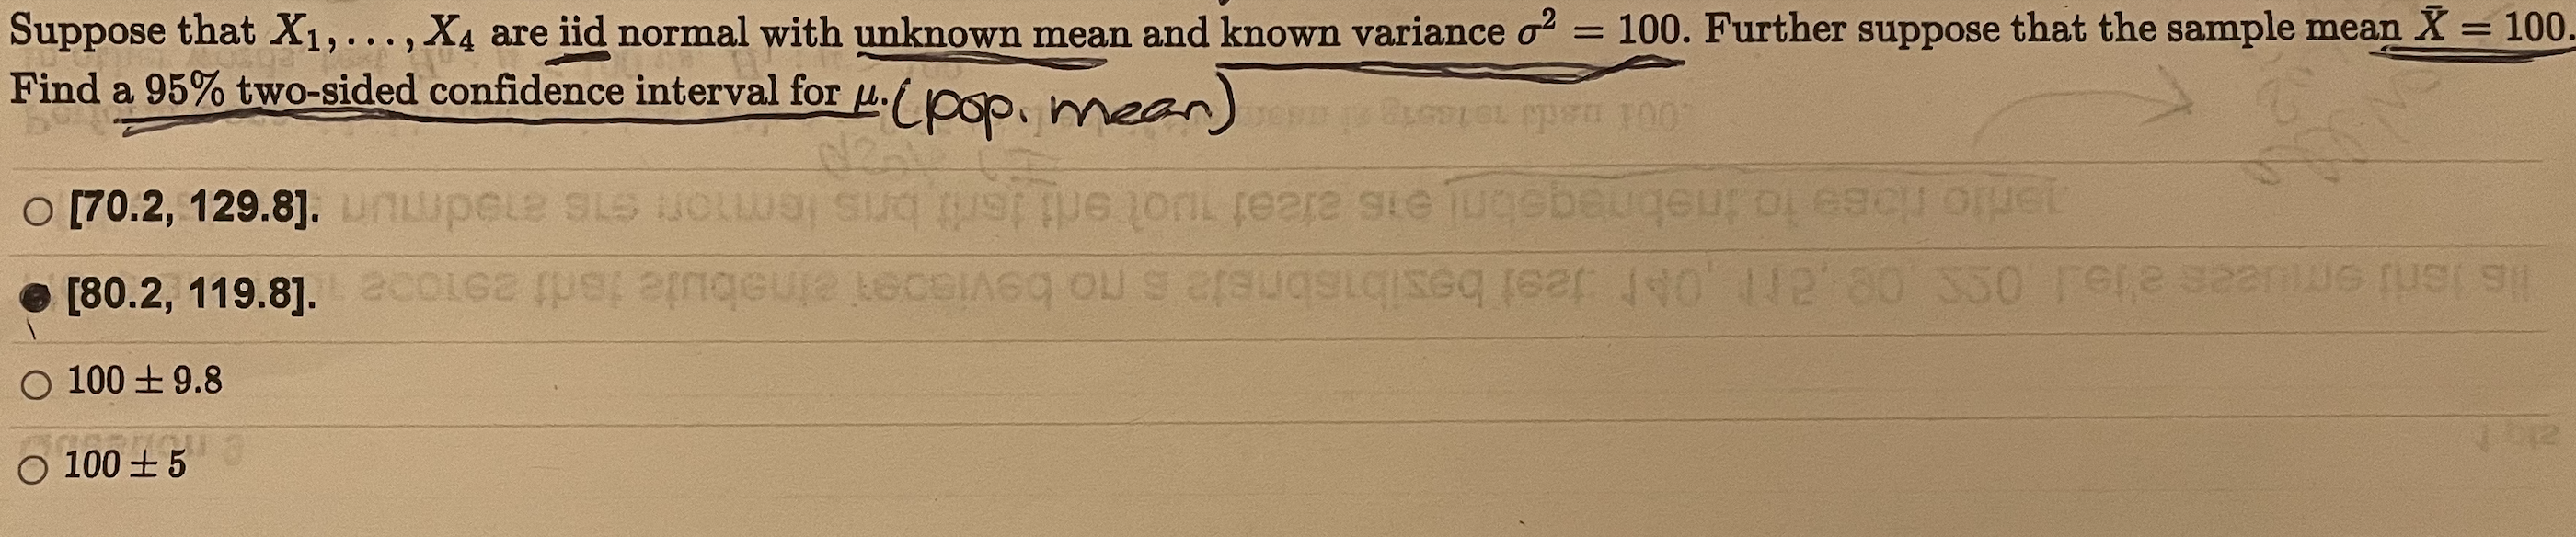 Suppose that X₁, . . . , X₄ are iid normal with unknown mean and known variance σ² = 100. Further suppose that the sample mean X̄ = 100.
Find a 95% two-sided confidence interval for μ. (pop. mean)
[70.2, 129.8].
[80.2, 119.8].
100 ± 9.8
100 ± 5